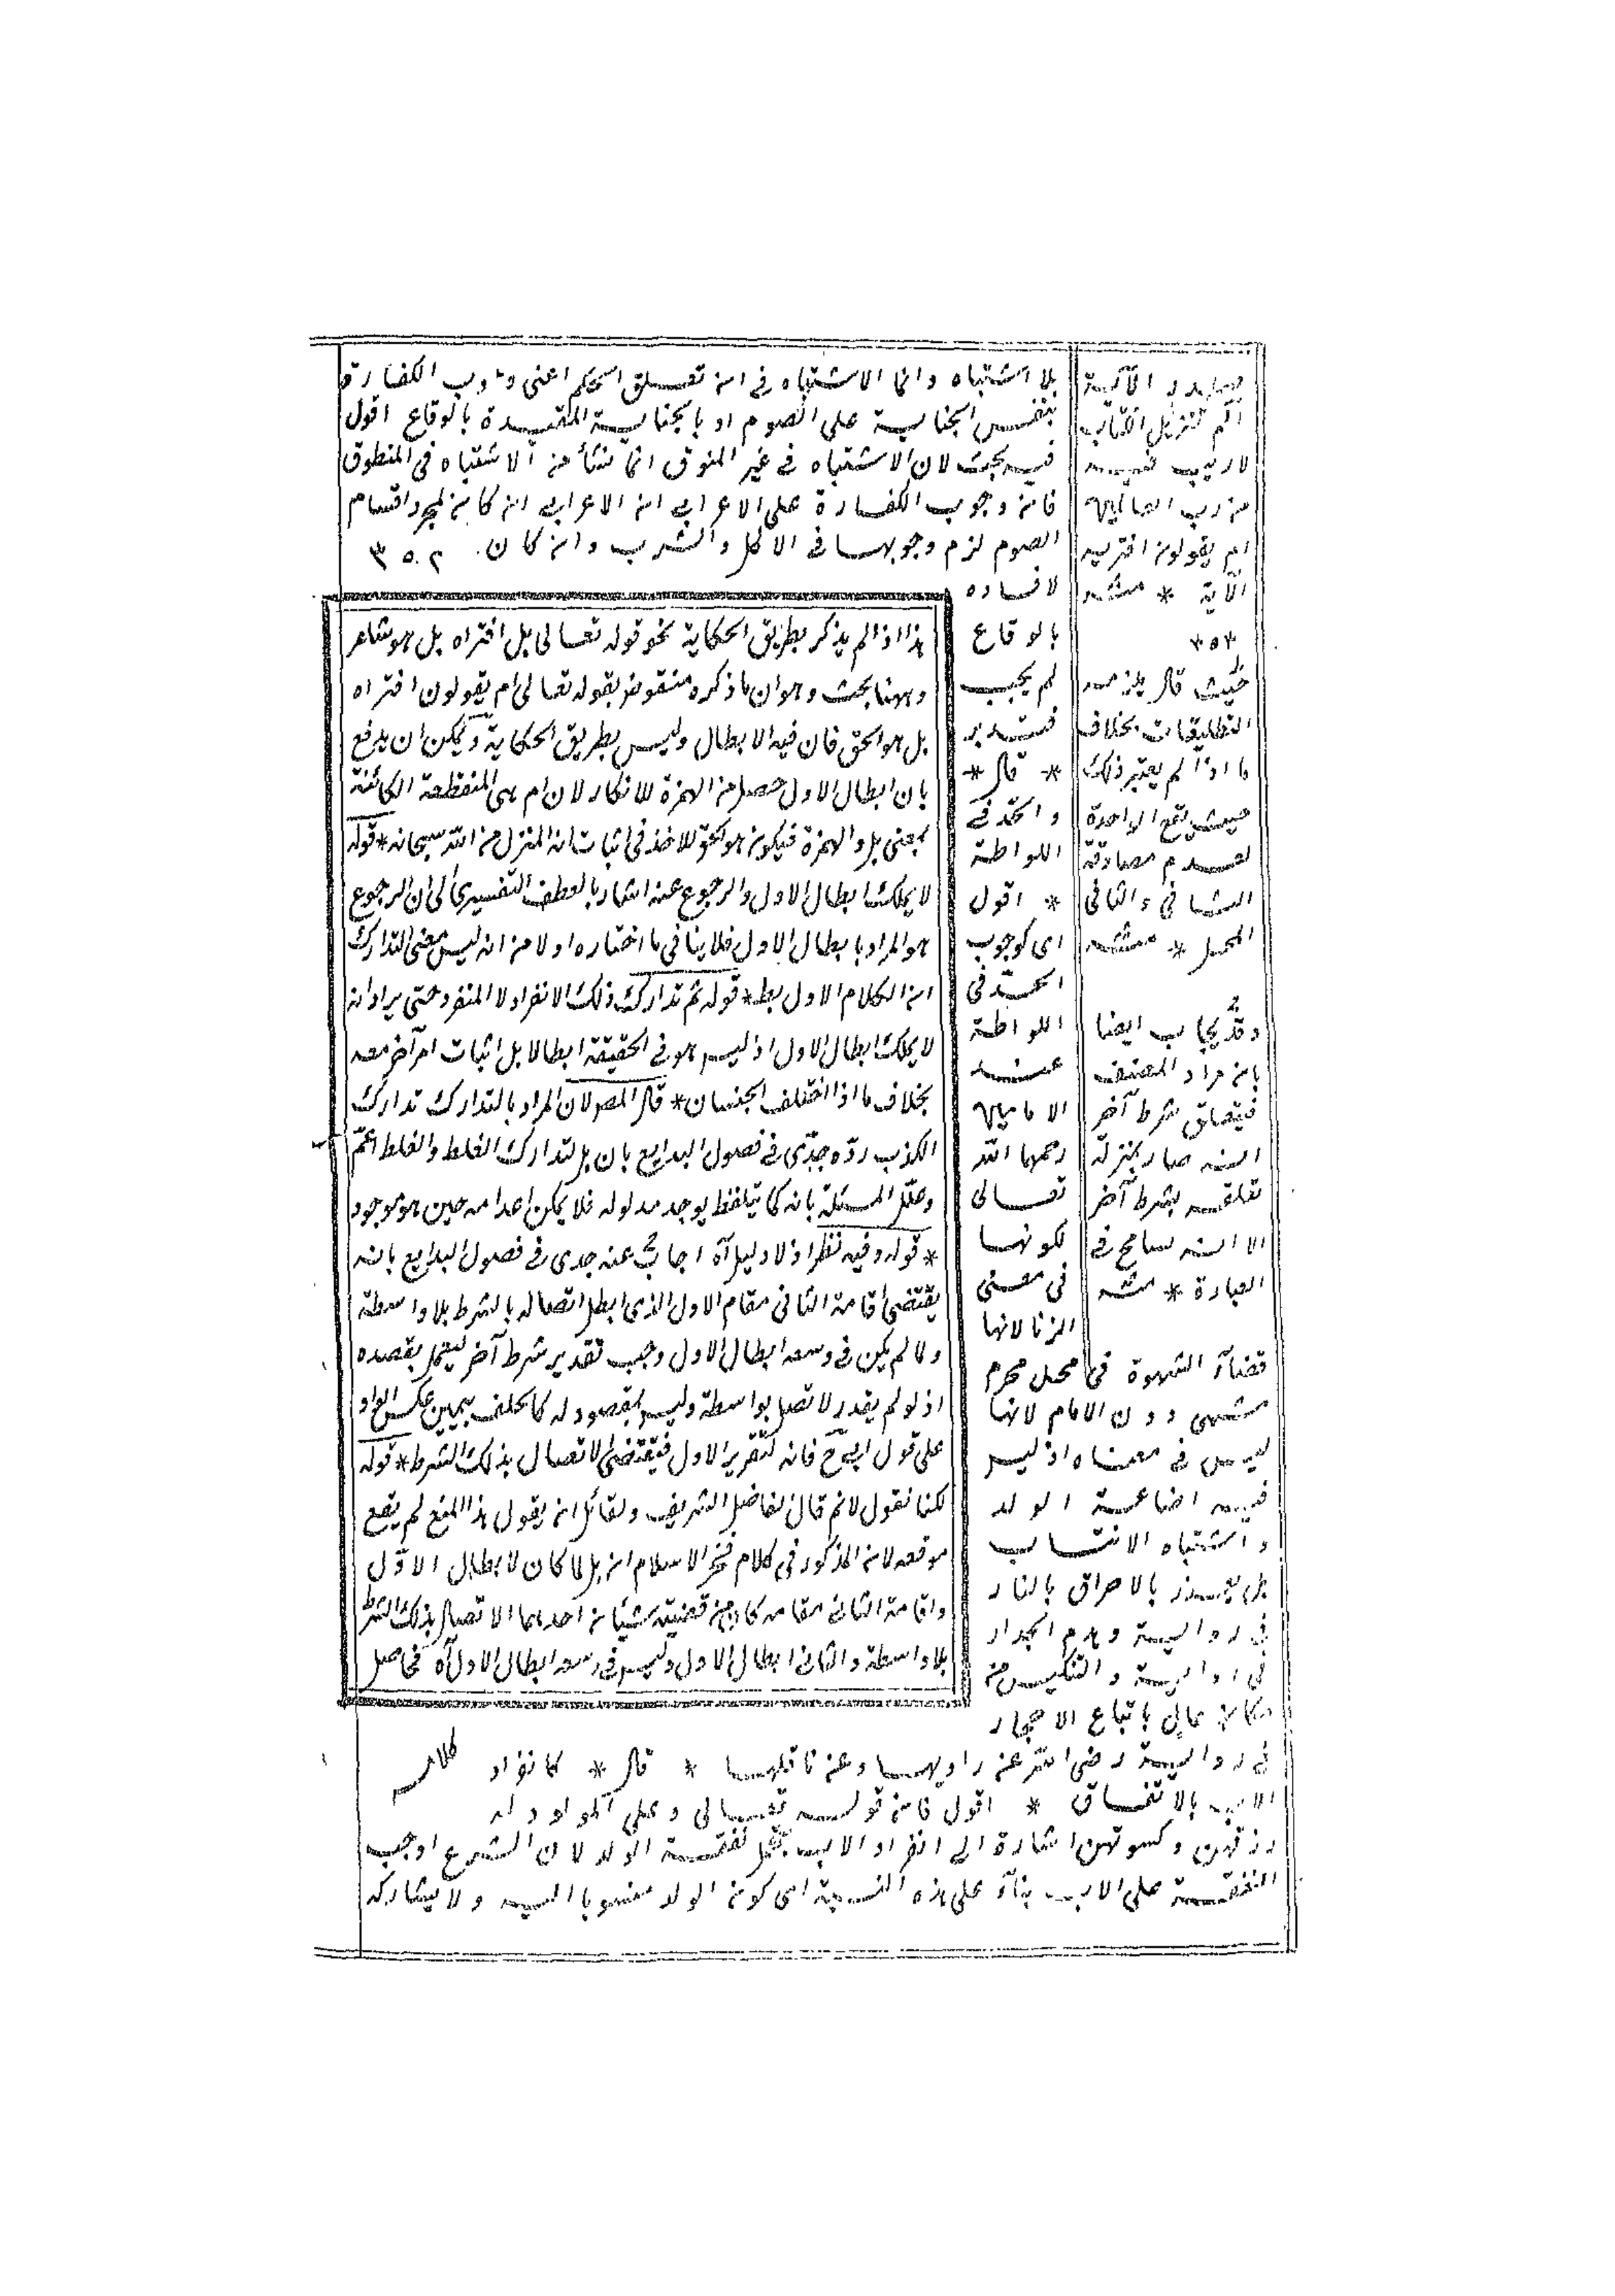 بلا اشتباه وانما الاشتباه فى ان تعلق الحكم اعنى وجوب الكفارة
بنفس الجناية على الصوم او بالجناية المقيدة بالوقاع اقول
فيه بحث لان الاشتباه فى غير المنوق انما نشأ من الاشتباه فى المنطوق
فان وجوب الكفارة على الاعرابى ان الاعرابى ان كان لمجرد اقسام
الصوم لزم وجوبها فى الاكل والشرب وان كان
لافساده
بالوقاع
لم يجب
فتدبر
* قال *
والحد فى
اللواطة
* اقول
اى كوجوب
الحد فى
اللواطة
عند
الامامين
رحمهما الله
تعالى
لكونها
فى معنى
الزنا لانها
قضاء الشهوة فى محل محرم
مشتهى دون الامام لانها
ليس فى معناه اذ ليس
فيه اضاعة الولد
واشتباه الانتساب
بل يعزر بالاحراق بالنار
فى رواية وهدم الجدار
فى رواية والتنكيس من
مكان عال باتباع الاحجار
فى رواية رضى الله عن راويها وعن ناقلها * قال * كانفراد
الاب بالانفاق * اقول فان قوله تعالى وعلى المولود له
رزقهن وكسوتهن اشارة الى انفراد الاب بتحمل نفقة الولد لان الشرع اوجب
النفقة على الاب بناء على هذه النسبة اى كون الولد منسوبا اليه ولا يشاركه
هذا اذا لم يذكر بطريق الحكاية نحو قوله تعالى بل افتراه بل هو شاعر
وههنا بحث وهو ان ما ذكره منقوض بقوله تعالى ام يقولون افتراه
بل هو الحق فان فيه الابطال وليس بطريق الحكاية ويمكن ان يدفع
بان ابطال الاول حصل من الهمزة للانكار لان ام هى المنقطعة الكائنة
بمعنى بل والهمزة فيكون هو الحق للاخذ فى اثبات انه المنزل من الله سبحانه * قوله
لا يملك ابطال الاول والرجوع عنه اشار بالعطف التفسيرى الى ان الرجوع
هو المراد بابطال الاول فلا ينافى ما اختاره اولا من انه ليس معنى التدارك
ان الكلام الاول بط * قوله ثم تدارك ذلك الانفراد لا المنفرد حتى يراد انه
لا يملك ابطال الاول اذ ليس هو فى الحقيقة ابطالا بل اثبات امر آخر معه
بخلاف ما اذا اختلف الجنسان * قال المص لان المراد بالتدارك تدارك
الكذب رده جدى فى فصول البدايع بان بل لتدارك الغلط والغلط اعم
وعلل المسئلة بانه كما يتلفظ يوجد مدلوله فلا يمكن اعدامه حين هو موجود
* قوله وفيه نظر اذ لا دليل آه اجاب عنه جدى فى فصول البدايع بانه
يقتضى اقامة الثانى مقام الاول الذى ابطل اتصاله بالشرط بلا واسطة
ولما لم يكن فى وسعه ابطال الاول وجب تقدير شرط آخر ليعمل بقصده
اذ لو لم يقدر لاتصل بواسطة وليس بمقصود له كالحلف بيمين عكس الواو
على قول ابى ح فانه لتقرير الاول فيقتضى الاتصال بذلك الشرط * قوله
لكنا نقول لانم قال الفاضل الشريف ولقائل ان يقول هذا المنع لم يقع
موقعه لان المذكور فى كلام فخر الاسلام ان بل لما كان لابطال الاول
واقامة الثانى مقامه كان من قضيته شيئان احدهما الاتصال بذلك الشرط
بلا واسطة والثانى ابطال الاول وليس فى وسعه ابطال الاول آه فحاصل
كلامه
الآية
الم تنزيل الكتاب
لا ريب فيه
من رب العالمين
ام يقولون افتريه
الآية *
٣٥٣
حيث قال يلزمه
التطليقات بخلاف
ما اذا لم يعتبر ذلك
حيث يقع الواحدة
لعدم مصادفة
الثانى والثانى
المحل *
وقد يجاب ايضا
بان مراد المصنف
فيتعلق بشرط آخر
انه صار بمنزلة
تعلقه بشرط آخر
الا انه سامح فى
العبارة *